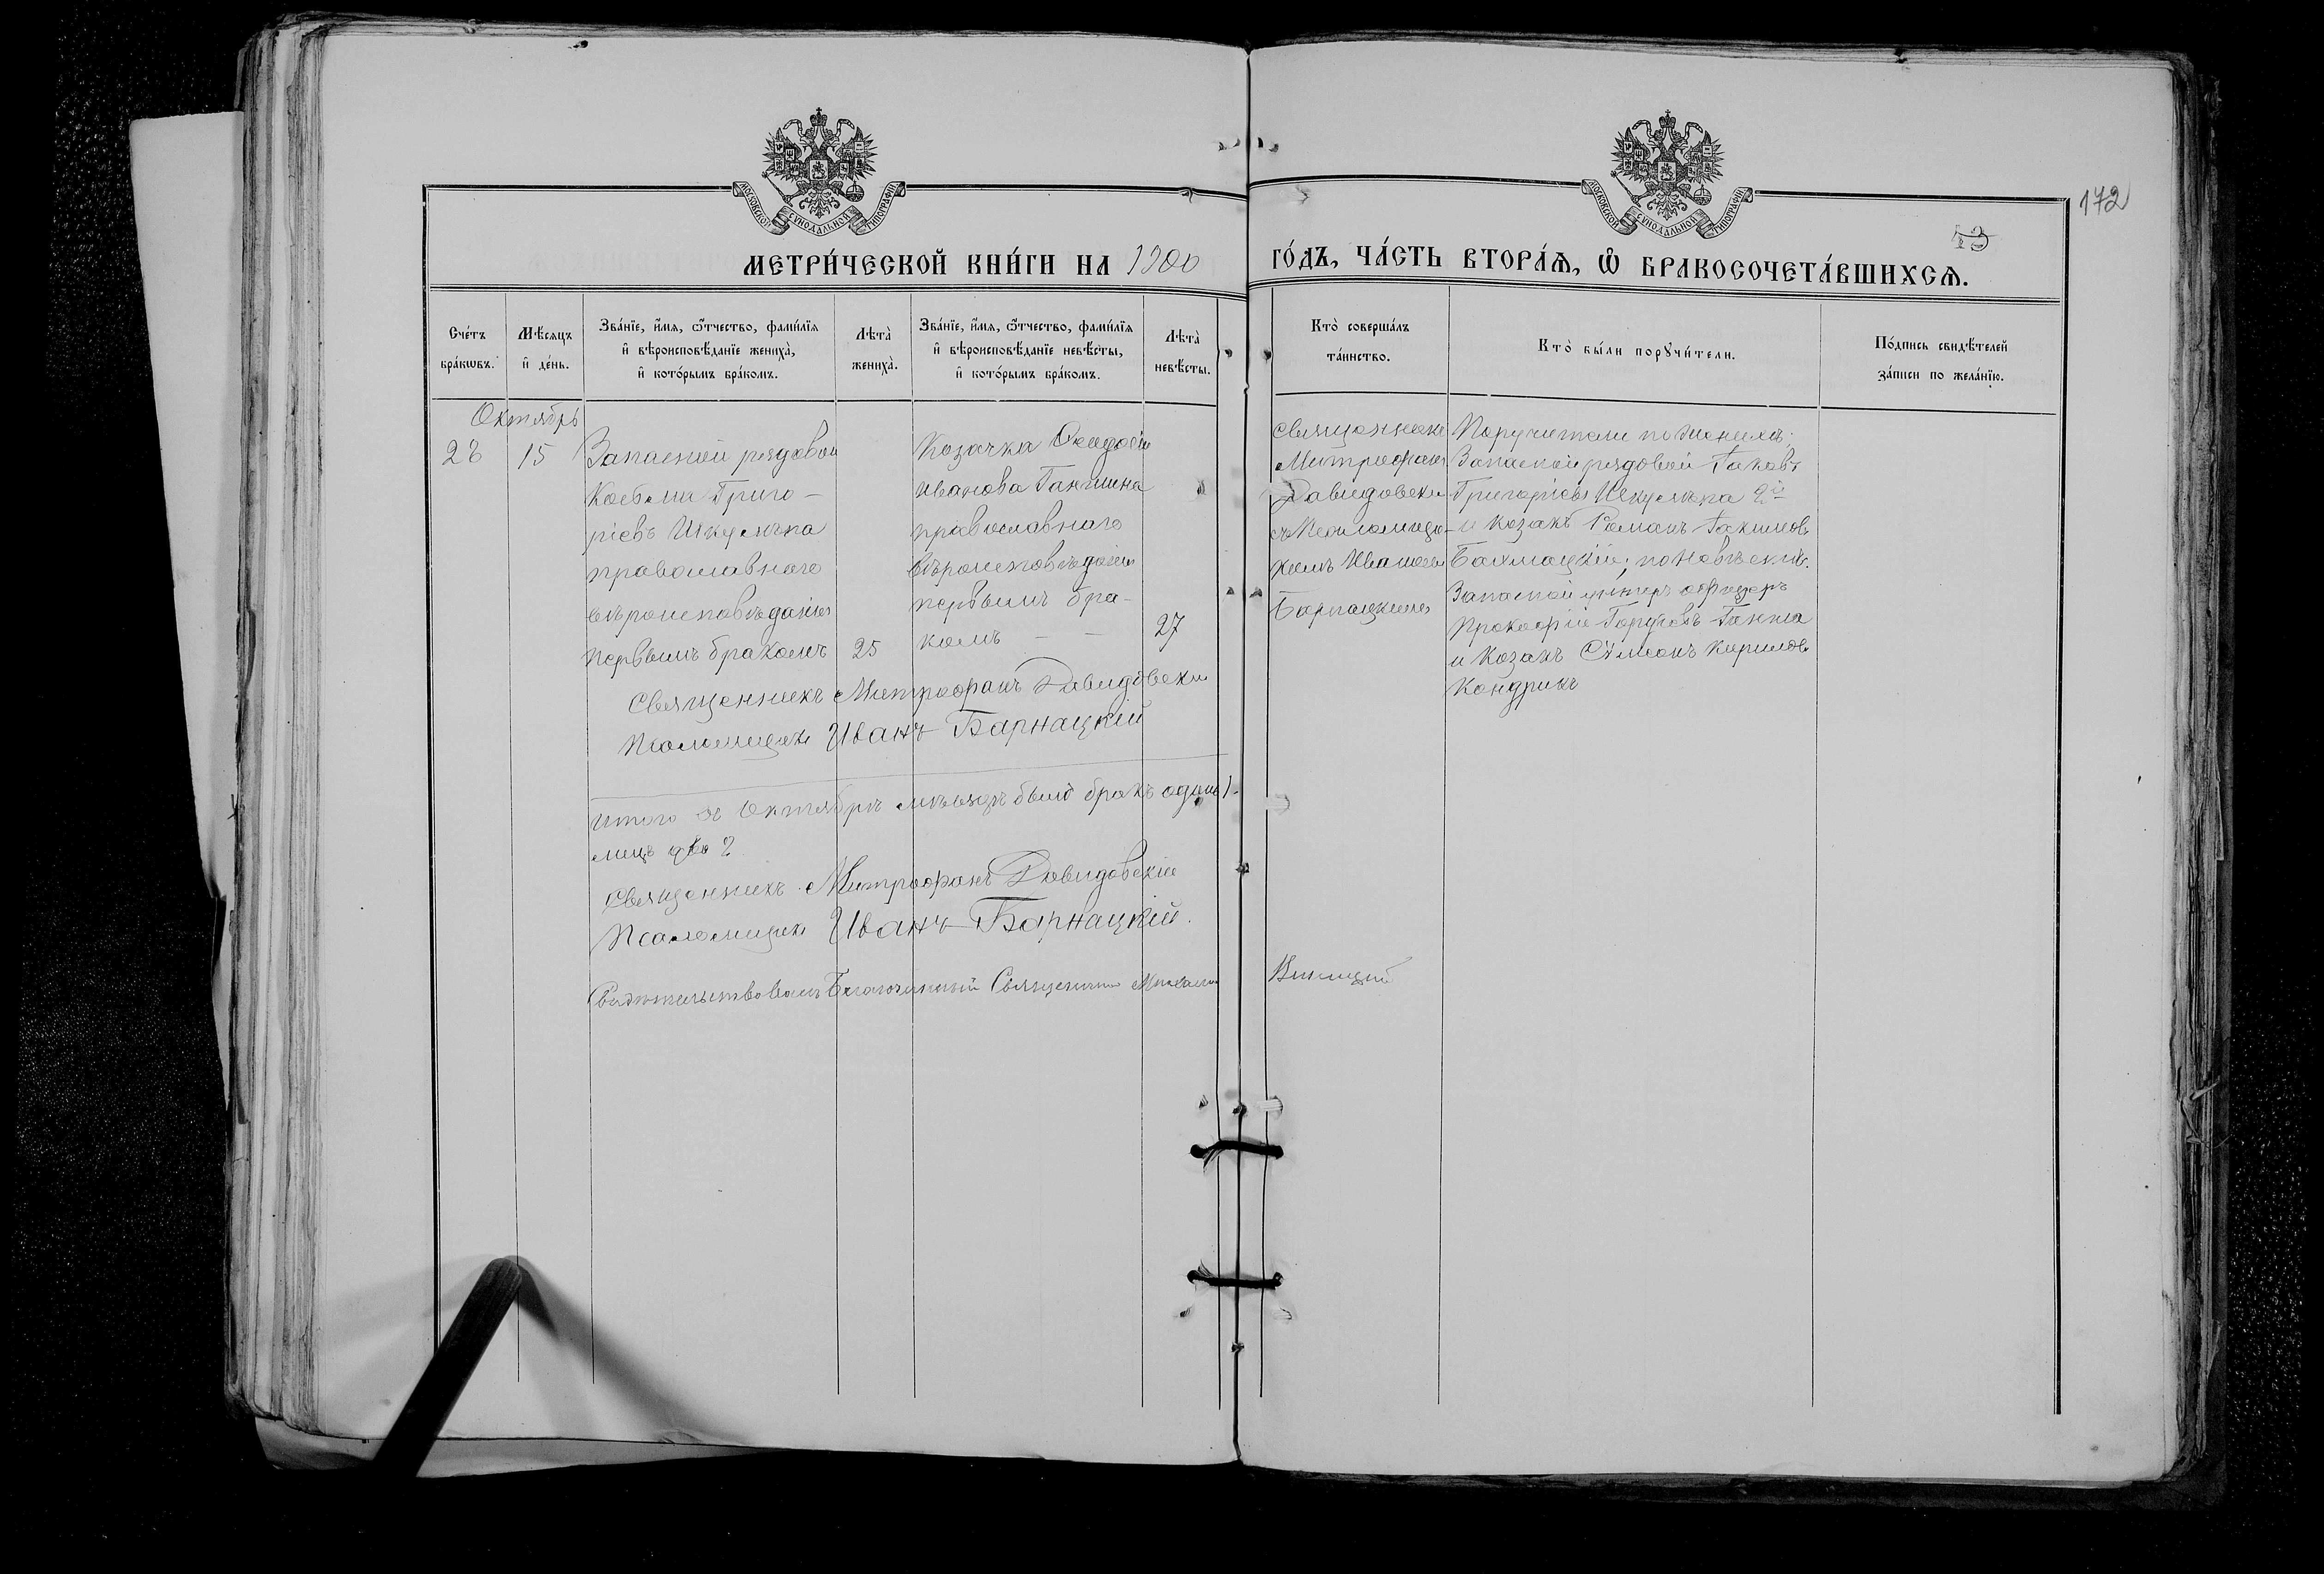 172
МОСКОВСКОЙ СѴНОДАЛЬНОЙ ТИПОГРАФІИ
МОСКОВСКОЙ СѴНОДАЛЬНОЙ ТИПОГРАФІИ
13
МЕТРИ́ЧЕСКОЙ КНИ́ГИ НА 1900 ГО́ДЪ, ЧА́СТЬ ВТОРА́Ѧ, Ѽ БРАКОСОЧЕТА́ВШИХСѦ.
Сче́тъ
бра́кѡвъ.
Мѣ́сѧцъ
и҆ де́нь.
Зва́нїе, и҆́мѧ, ѻ҆́тчество, фами́лїѧ
и҆ вѣроисповѣ́данїе жениха̀,
и҆ кото́рымъ бра́комъ.
Лѣта̀
жениха̀.
Зва́нїе, и҆́мѧ, ѻ҆́тчество, фами́лїѧ
и҆ вѣроисповѣ́данїе невѣ́сты,
и҆ кото́рымъ бра́комъ.
Лѣта̀
невѣ́сты.
Кто̀ соверша́лъ
та́инство.
Кто̀ бы́ли порꙋчи́тели.
По́дпись свидѣ́телей
за́писи по жела́нїю.
Октябрь
28
15
Запасной рядовой
Косьма Григо-
ріевъ Шкумъпа
православнаго
вѣроисповѣданія
первымъ бракомъ
25
Козачка Ѳеодосія
Иванова Ганжина
православнаго
вѣроисповѣданія
первымъ бра-
комъ - -
27
Священникъ
Митрофанъ
Давидовскій
съ Псаломщи-
комъ Иваномъ
Барнацкимъ
Поручители по женихѣ:
Запасной рядовой Іаковъ
Григоріевъ 2й
и козакъ Романъ Іакимовъ
Бахмацкій; по невѣстѣ:
Запасной унтеръ офицеръ
Прокофій Ганжа
и Козакъ Сѵмеонъ Кириловъ
Кондрикъ
Священникъ Митрофанъ Давидовскій
Псаломщикъ Иванъ Барнацкій
Итого въ Октябрѣ мѣсяцѣ былъ бракъ одинъ 1.
лицъ два 2.
Священникъ Митрофанъ Давидовскій
Псаломщикъ Иванъ Барнацкій.
Свидѣтельствовалъ Благочинный Священникъ Михаилъ